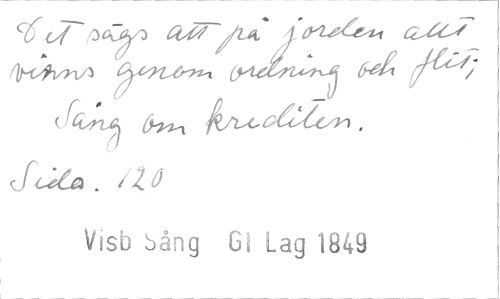 Det sägs att på jorden allt
vinns genom ordning och flit;
Sång om krediten.
Sida. 120
Visb Sång Gl Lag 1849